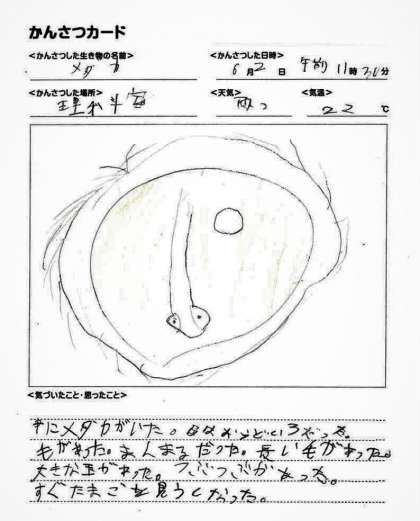 かんさつカード
<かんさつした生き物の名前> <かんさつした日時>
メダカ 6月2日 午前 11時30分
<かんさつした場所> <天気> <気温>
理科室 22℃
<気づいたこと・思ったこと>
中にメダカがいた。
毛がわった。まんまるだった。長い毛がわった。
大きな玉がわった。つぶつぶがあった。
すぐたまごを見うしなった。